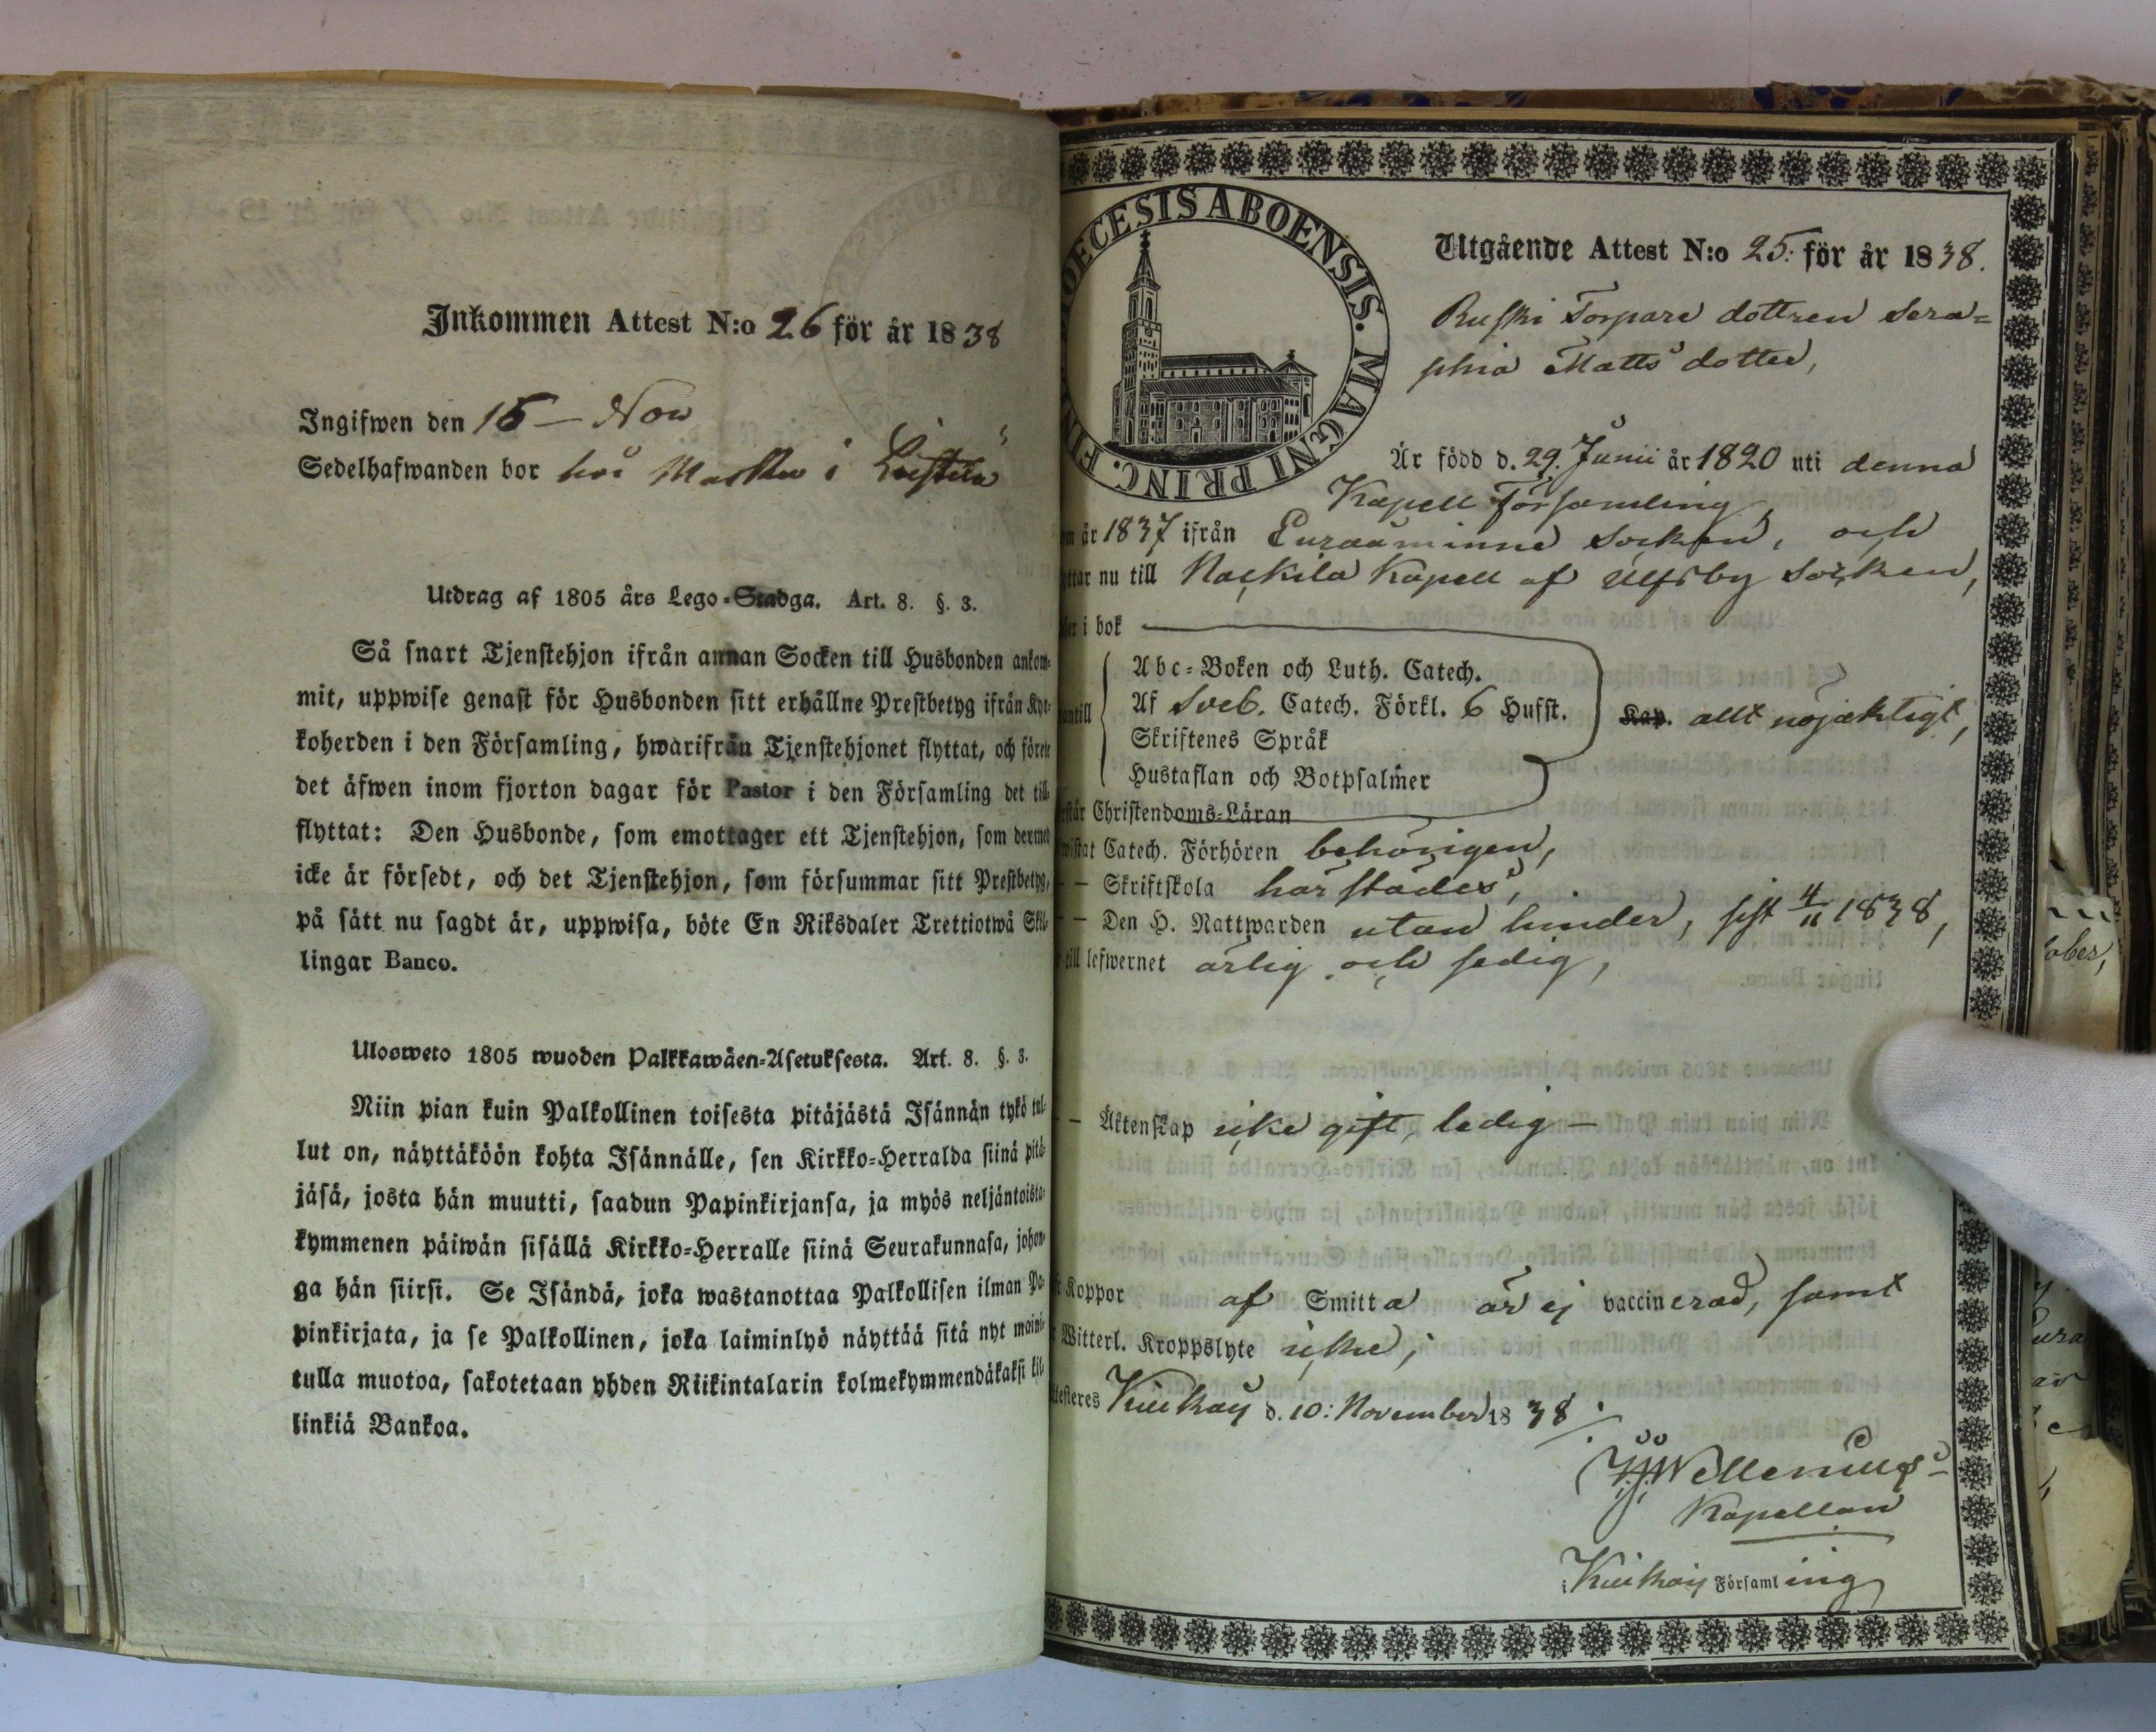 Inkommen Attest N:o 26 för år 1838
Ingifwen den 15 – Nov
Sedelhafwanden bor hos i
Utdrag af 1805 års Lego-Stadga. Art. 8. §. 3.
Så snart Tjenstehjon ifrån annan Socken till Husbonden ankom-
mit, uppwise genast för Husbonden sitt erhållne Prestbetyg ifrån Kyr-
koherden i den Församling, hwarifrån Tjenstehjonet flyttat, och förete
det äfwen inom fjorton dagar för Pastor i den Församling det till-
flyttat: Den Husbonde, som emottager ett Tjenstehjon, som dermed
icke är försedt, och det Tjenstehjon, som försummar sitt Prestbetyg,
på sätt nu sagdt är, uppwisa, böte En Riksdaler Trettiotwå Skil-
lingar Banco.
Ulosweto 1805 wuoden Palkkawäen-Asetuksesta. Art. 8. §. 3.
Niin pian kuin Palkollinen toisesta pitäjästä Isännän tykö tul-
lut on, näyttäköön kohta Isännälle, sen Kirkko-Herralda siinä pitä-
jäsä, josta hän muutti, saadun Papinkirjansa, ja myös neljäntoista-
kymmenen päiwän sisällä Kirkko-Herralle siinä Seurakunnasa, johon-
ga hän siirsi. Se Isändä, joka wastanottaa Palkollisen ilman Pa-
pinkirjata, ja se Palkollinen, joka laiminlyö näyttää sitä nyt maini-
tulla muotoa, sakotetaan yhden Riikintalarin kolmekymmendäkaksi kil-
linkiä Bankoa.
DIOECESIS ABOENSIS. MAGNI PRINC. FIN
Utgående Attest N:o 25. för år 1838.
Ruski Torpare dottren Sera=
phia Matts dotter,
Är född d. 29. Junii år 1820 uti denna
Kapell Församling,
år 1837 ifrån Euraåminne Socken, och
nu till Nackila Kapell af Ulfsby Socken,
i bok
Abc-Boken och Luth. Catech.
Af Sveb. Catech. Förkl. 6 Hufst.
Skriftenes Språk
Kap. allt nöjaktigt,
Hustaflan och Botpsalmer
Christendoms-Läran
Catech. Förhören behörigen,
– Skriftskola härstädes,
– – Den H. Nattwarden utan hinder, sist 4/11 1838,
till lefwernet ärlig och sedig,
– Äktenskap icke gift, ledig –
Koppor af Smitta är ej vaccinerad, samt
Witterl. Kroppslyte icke,
d. 10: November 1838
Wellenius
Kapellan
i Församling